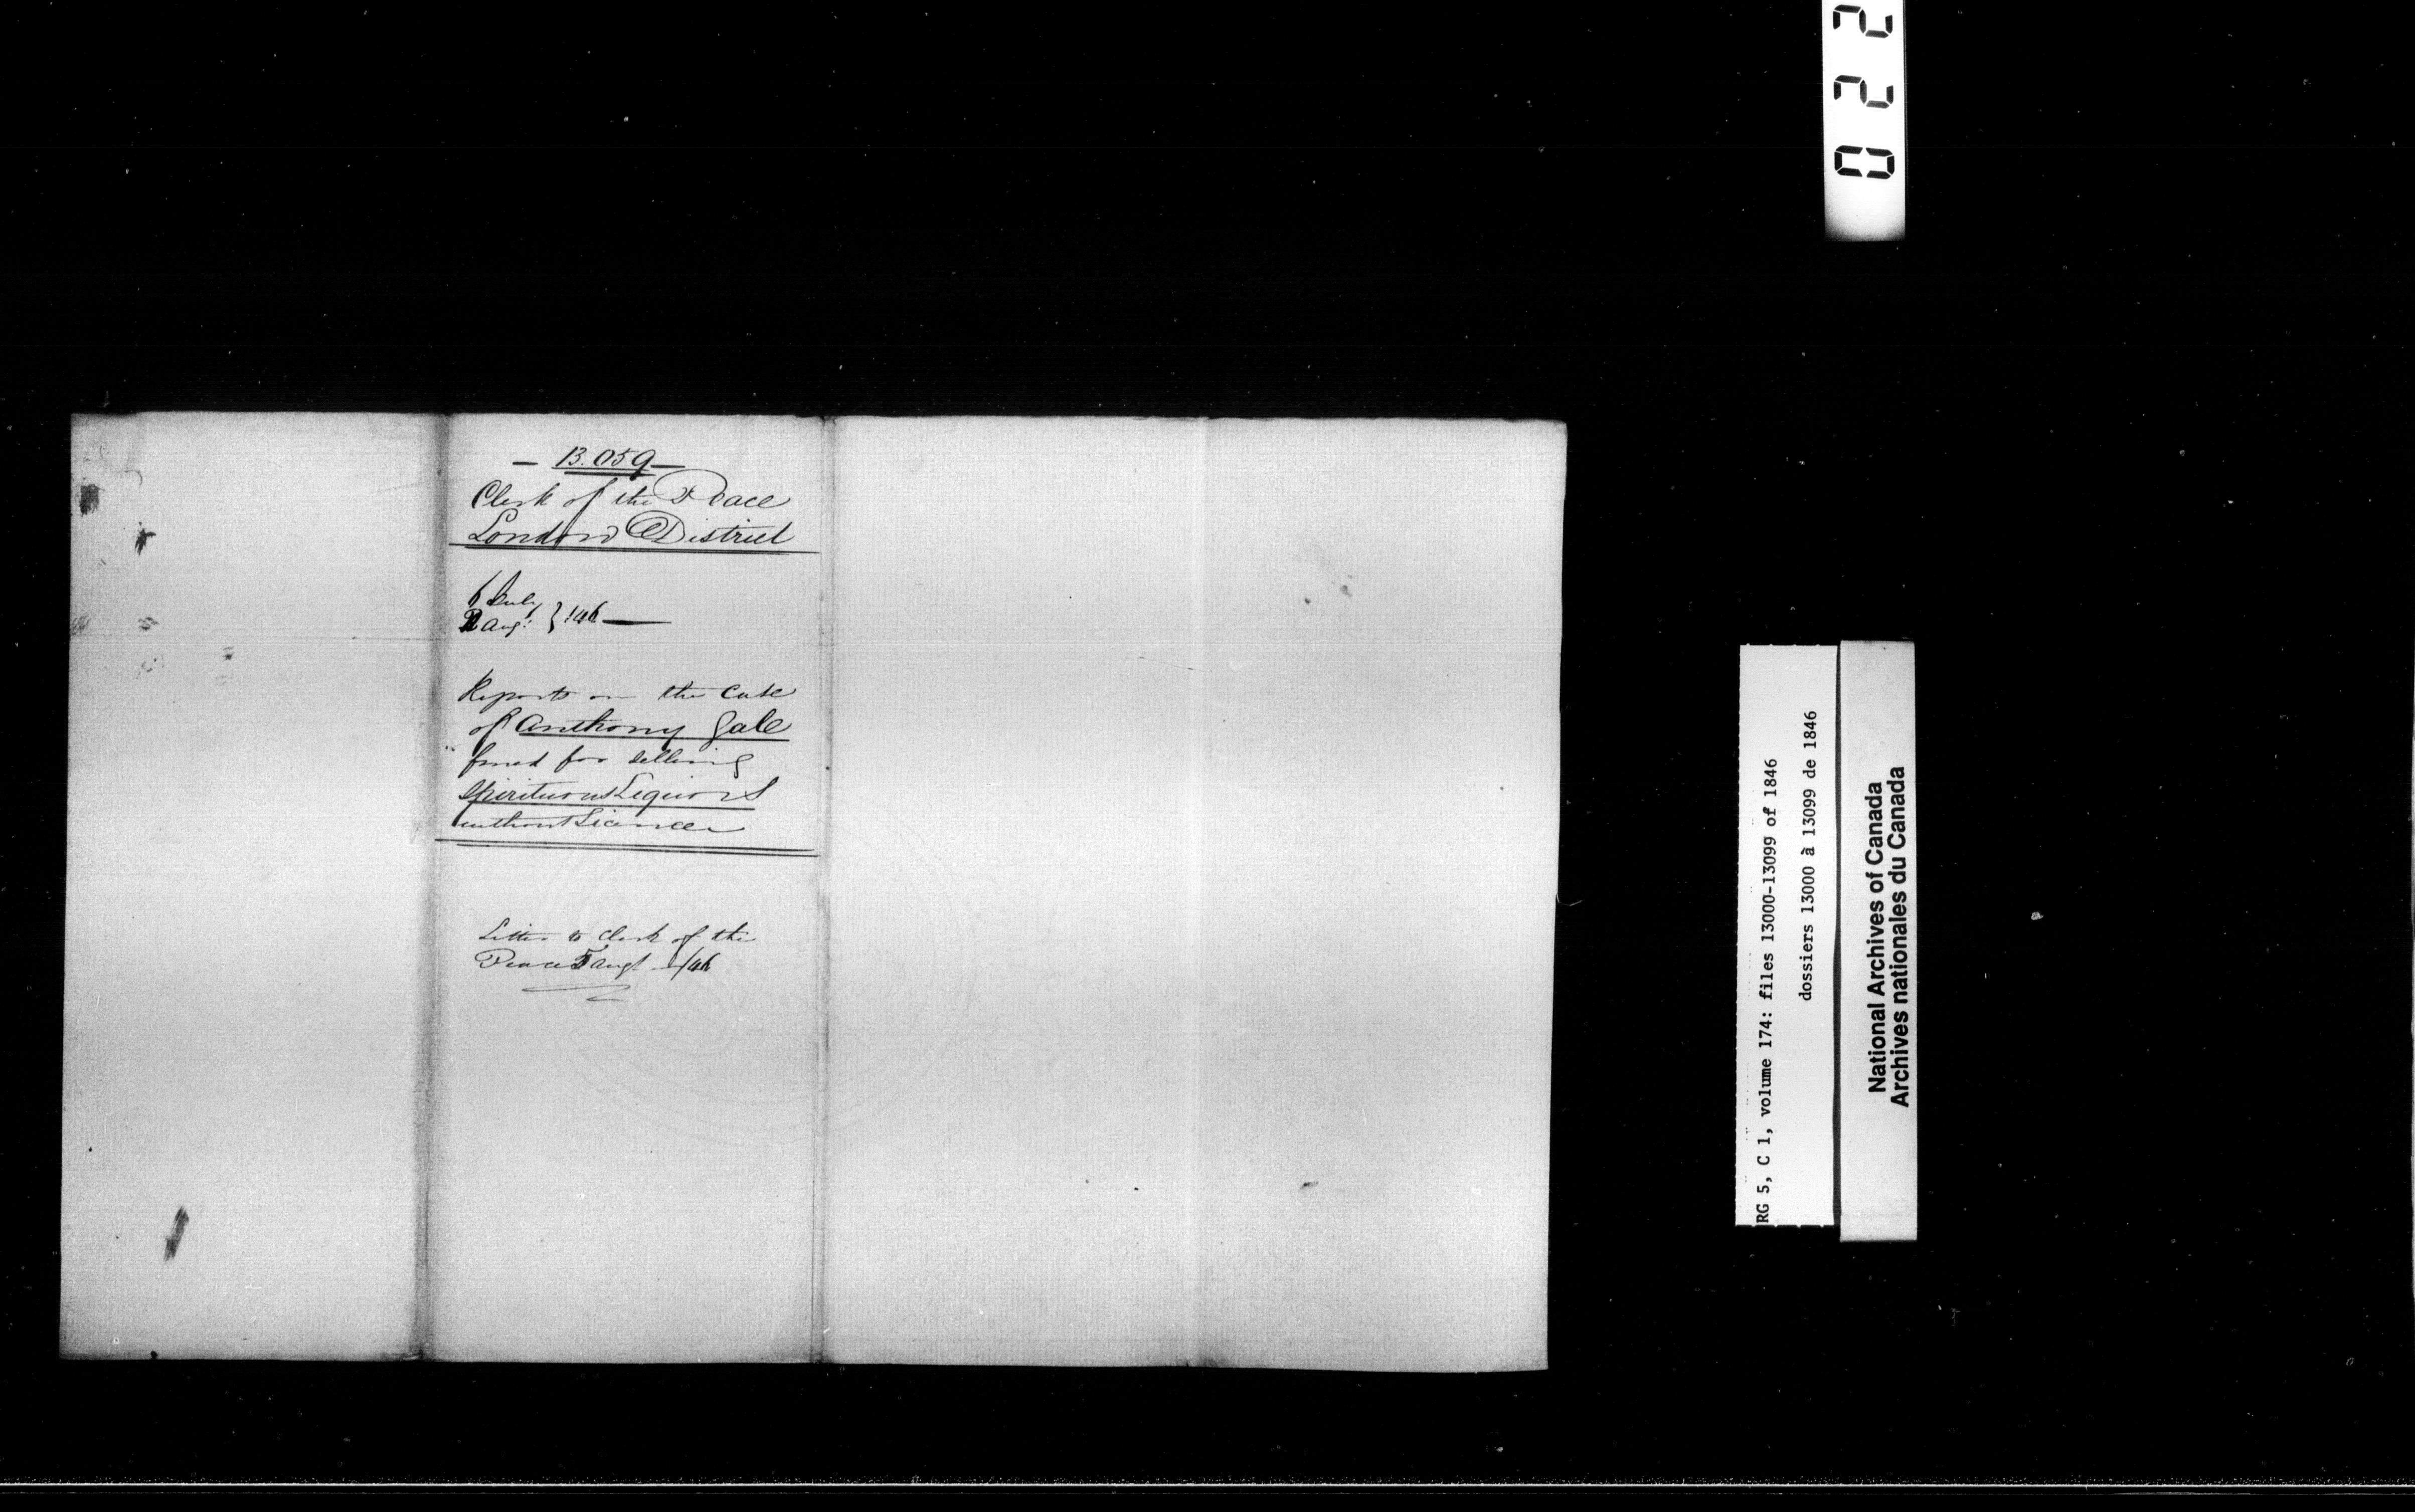 — 13.059 —
Clerk of the Peace
London District
6 July
2 Aug: } /46 —
Reports on the Case
of Anthony Gale
fined for selling
Spirituous Liquors
without Licence
Letter to Clerk of the
Peace 5 Augt /46
RG 5, C 1, volume 174: files 13000-13099 of 1846
dossiers 13000 à 13099 de 1846
National Archives of Canada
Archives nationales du Canada
022